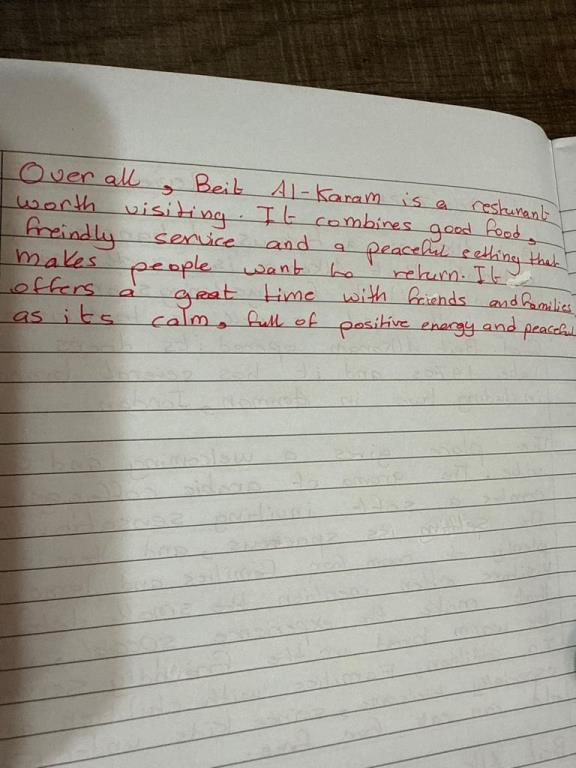 Over all, Beit Al-Karam is a resturant
worth visiting. It combines good food,
freindly service and a peaceful setting that
makes people want to return. It
offers a great time with friends and families
as its calm, full of positive energy and peaceful